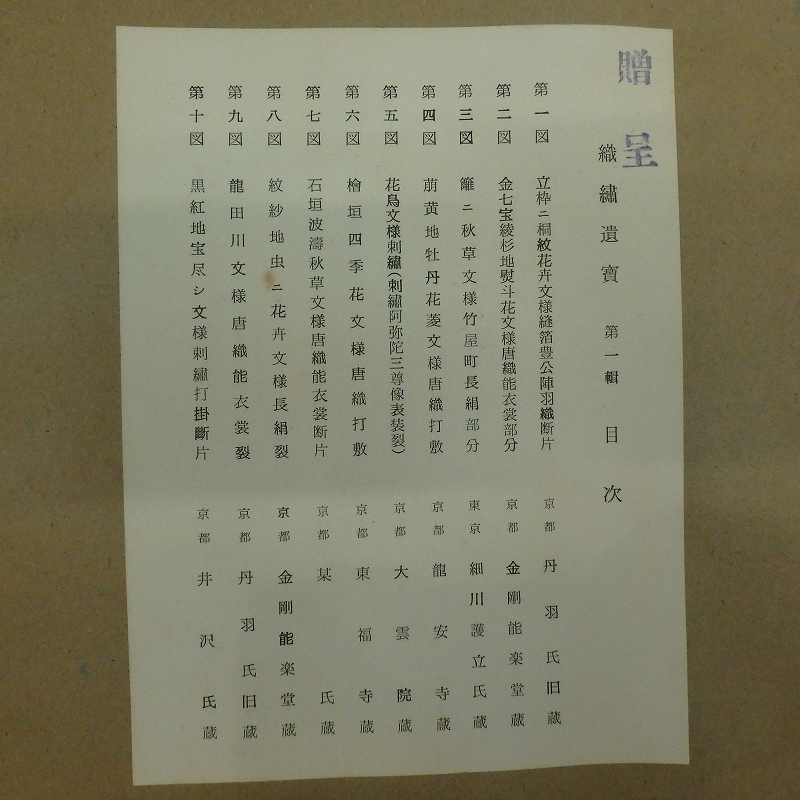 贈呈
織繡遺寶 第一輯 目次
第一図 立枠ニ桐紋花卉文様縫箔豊公陣羽織断片 京都 丹羽氏旧蔵
第二図 金七宝綾杉地熨斗花文様唐織能衣裳部分 京都 金剛能楽堂蔵
第三図 籬ニ秋草文様竹屋町長絹部分 東京 細川護立氏蔵
第四図 萠黄地牡丹花菱文様唐織打敷 京都 龍安寺蔵
第五図 花鳥文様刺繡(刺繡阿弥陀三尊像表装裂) 京都 大雲院蔵
第六図 檜垣四季花文様唐織打敷 京都 東福寺蔵
第七図 石垣波濤秋草文様唐織能衣裳断片 京都 某氏蔵
第八図 紋紗地虫ニ花卉文様長絹裂 京都 金剛能楽堂蔵
第九図 龍田川文様唐織能衣裳裂 京都 丹羽氏旧蔵
第十図 黒紅地宝尽シ文様刺繡打掛斷片 京都 井沢氏蔵